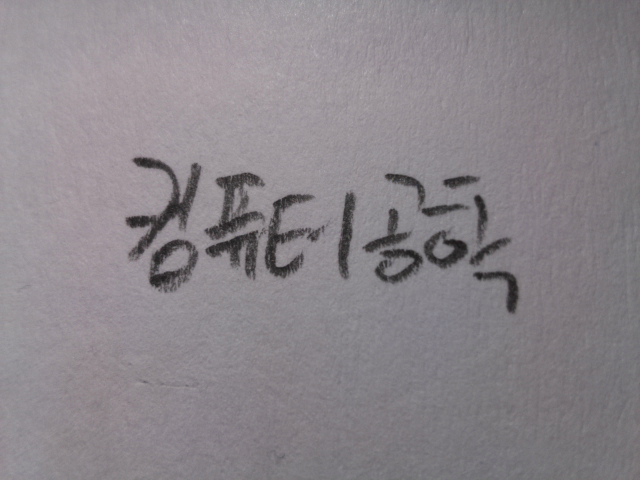 컴퓨터공학